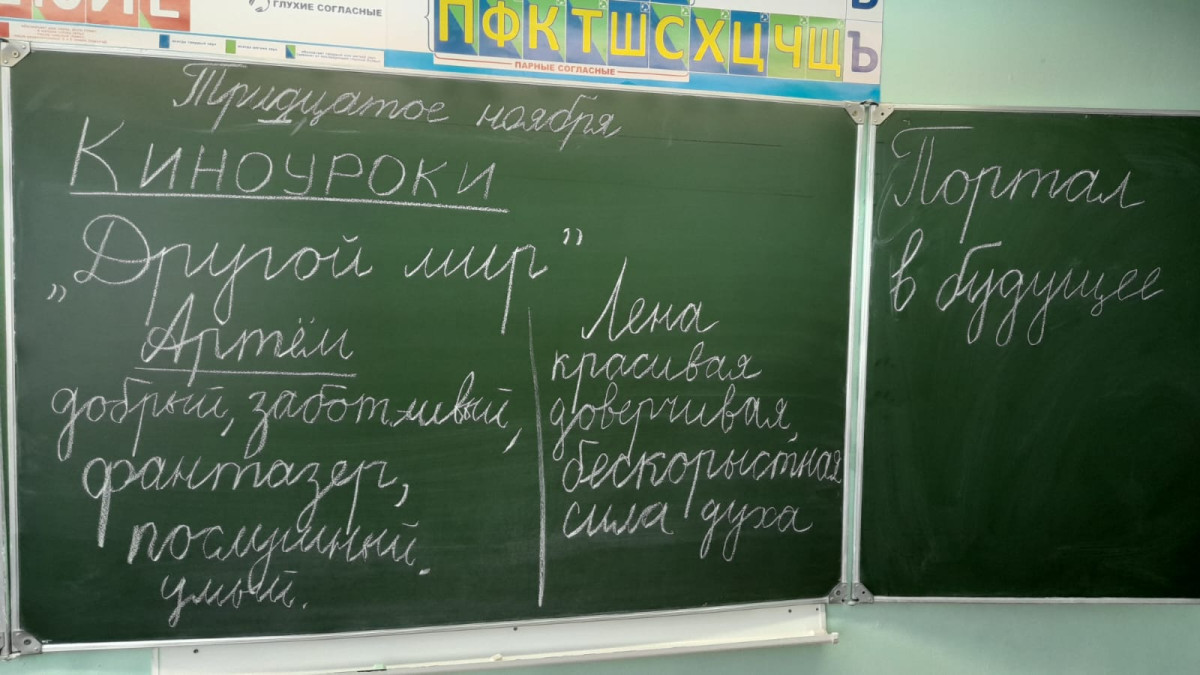 ГЛУХИЕ СОГЛАСНЫЕ
ПФКТШСХЦЧЩ
Ъ
ПАРНЫЕ СОГЛАСНЫЕ
Тридцатое ноября
Киноуроки
„Другой мир”
Артём
добрый, заботливый,
фантазер,
послушный.
умый.
Лена
красивая
доверчивая,
бескорыстная
сила духа
Портал
в будущее